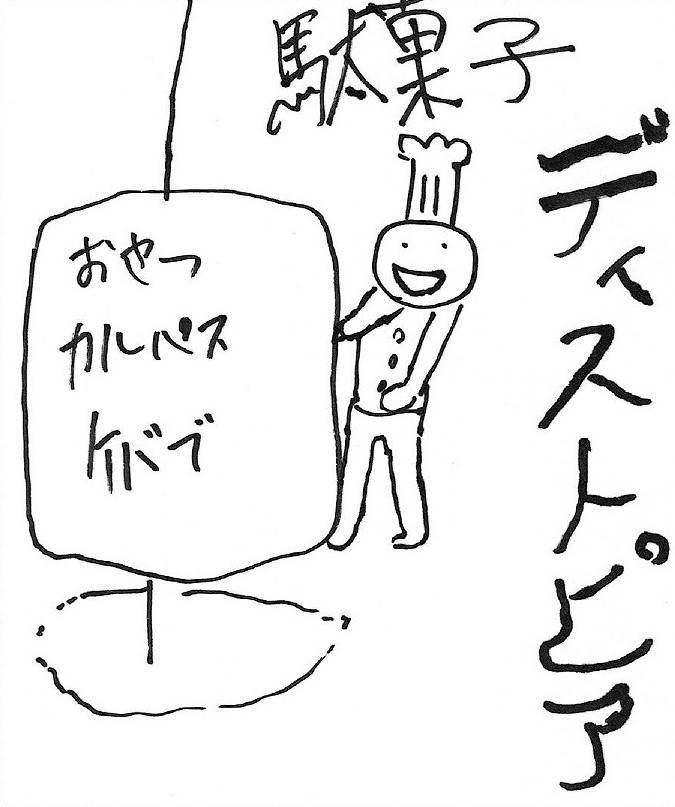 駄菓子
ディストピア
おやつ
カルパス
ケバブ